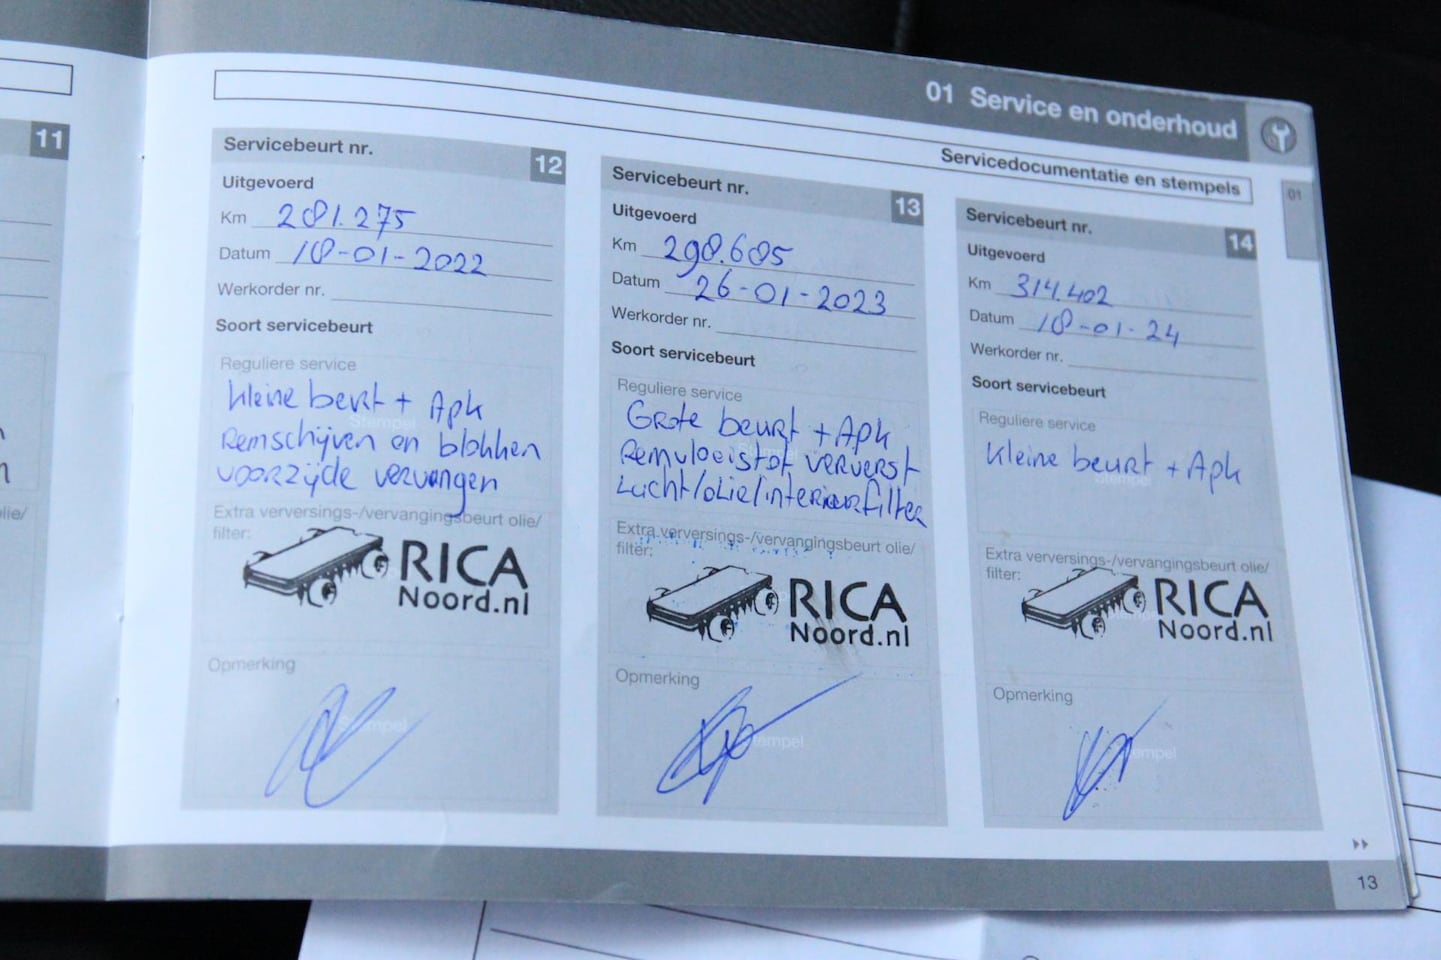 01 Service en onderhoud
Servicedocumentatie en stempels
01
11
lie/
Servicebeurt nr. 12
Uitgevoerd
Km 281.275
Datum 18-01-2022
Werkorder nr.
Soort servicebeurt
Reguliere service
Kleine beurt + Apk
Stempel
Remschijven en blokken
voorzijde vervangen
Extra verversings-/vervangingsbeurt olie/
filter:
RICA
Noord.nl
Opmerking
Stempel
Servicebeurt nr. 13
Uitgevoerd
Km 298.685
Datum 26-01-2023
Werkorder nr.
Soort servicebeurt
Reguliere service
Grote beurt + Apk
Remvloeistof ververst
Lucht/olie/interieurfilter
Extra verversings-/vervangingsbeurt olie/
filter:
RICA
Noord.nl
Opmerking
Stempel
Servicebeurt nr. 14
Uitgevoerd
Km 314.402
Datum 18-01-24
Werkorder nr.
Soort servicebeurt
Reguliere service
Kleine beurt + Apk
Stempel
Extra verversings-/vervangingsbeurt olie/
filter:
RICA
Noord.nl
Opmerking
Stempel
13